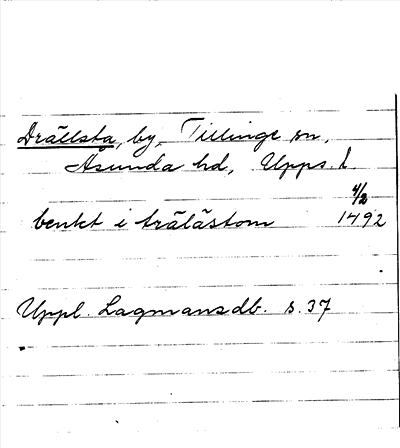 Drällsta, by, Tillinge sn,
Åsunda hd, Upps. l.
4/2
benkt i trälästom 1492
Uppl. Lagmansdb. s. 37